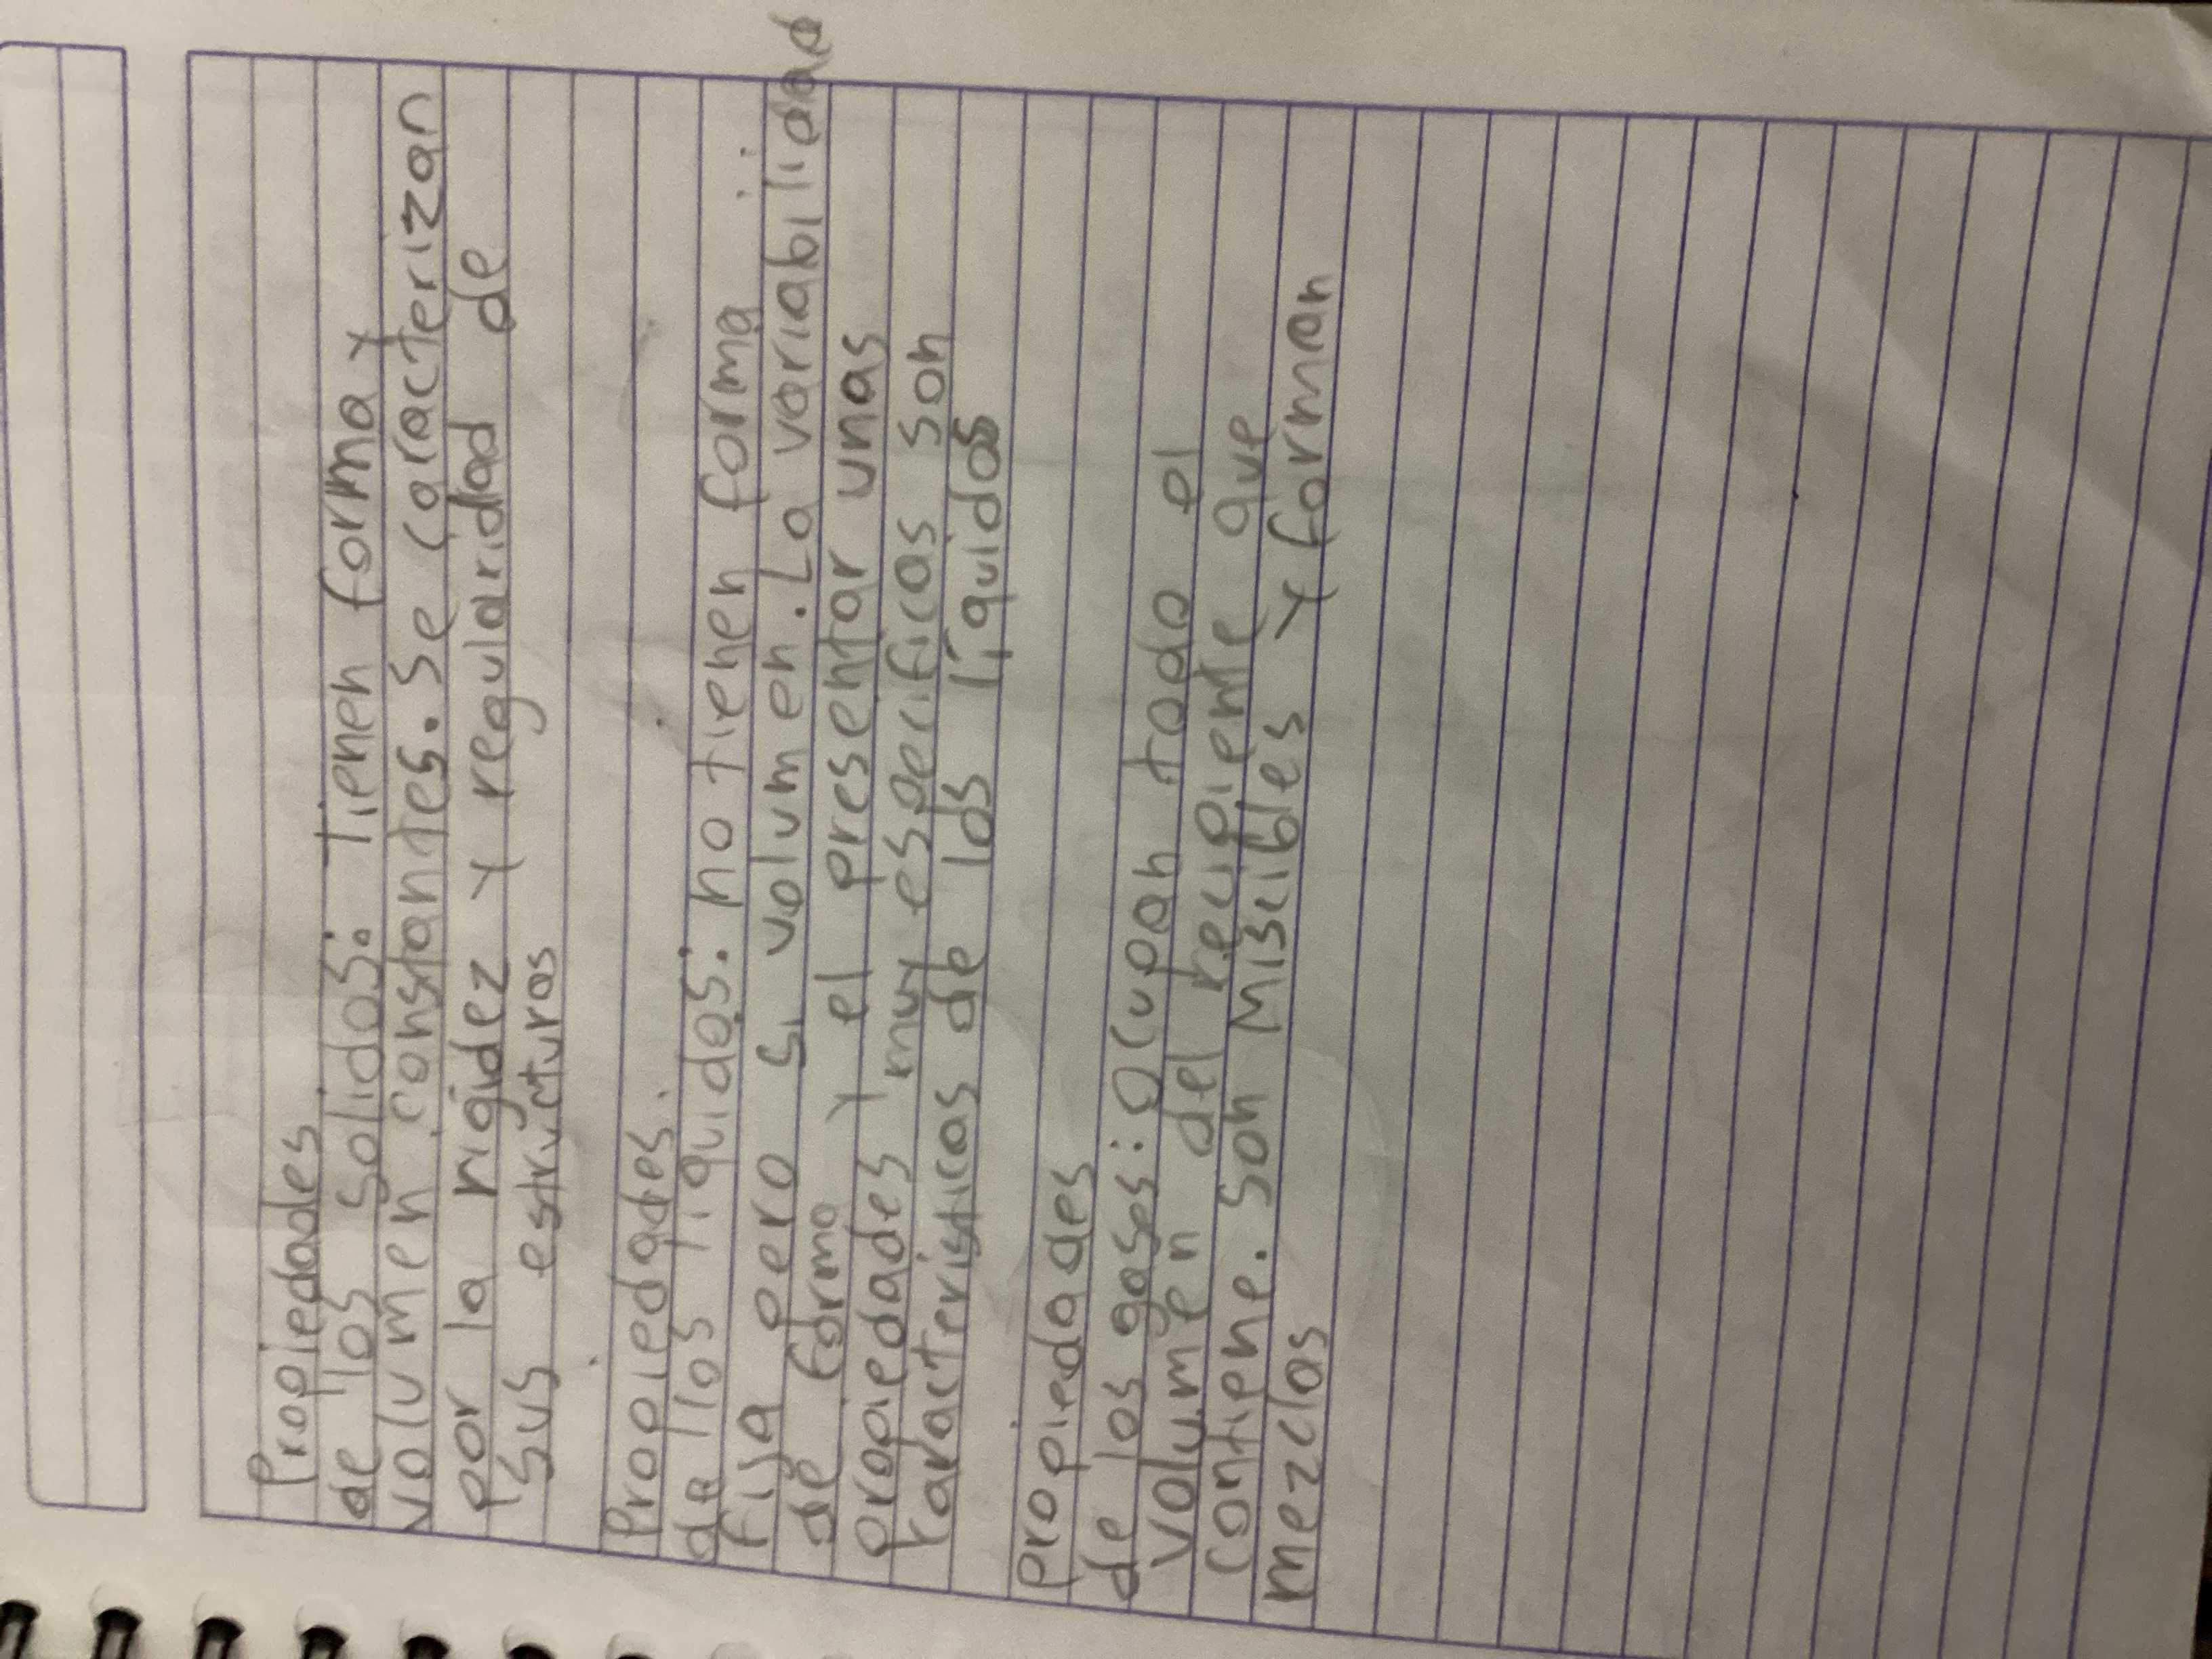 Propiedades
de los solidos: Tienen forma y
volumen constantes. Se caracterizan
por la rigidez y regularidad de
sus estructuras
Propiedades
de los liquidos: no tienen forma
fija pero si volumen. La variabilidad
de forma y el presentar unas
propiedades muy especificas son
características de los líquidos
Propiedades
de los gases: Ocupan todo el
volumen del recipiente que
contiene. Son Miscibles y forman
mezclas